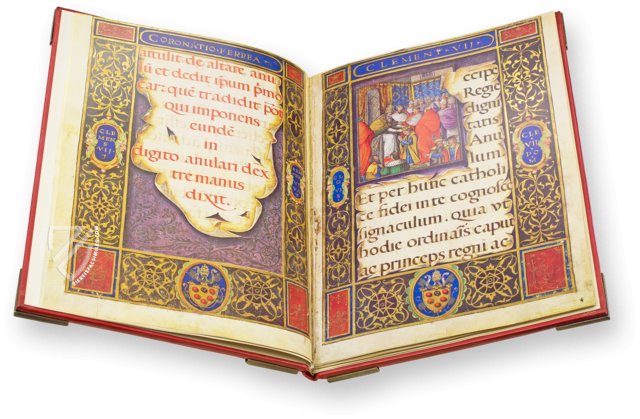 CORONATIO·FERREA
attulit de altare anu
lũ et dedit ip̃um p̃me
car: quẽ tradidit põt
qui imponens
eundẽ
in
digito anulari dex
tre manus
dixit.
CLE
MENS
VII
CLEMENT VII
ccipe
Regie
digni
tatis
Anu
lum
Et per hunc catholi
ce fidei in te cognosce
signaculum. quia vt
hodie ordinaris caput
ac princeps regni ac
CLE
VII
4
ZIEREISFACSIMILES